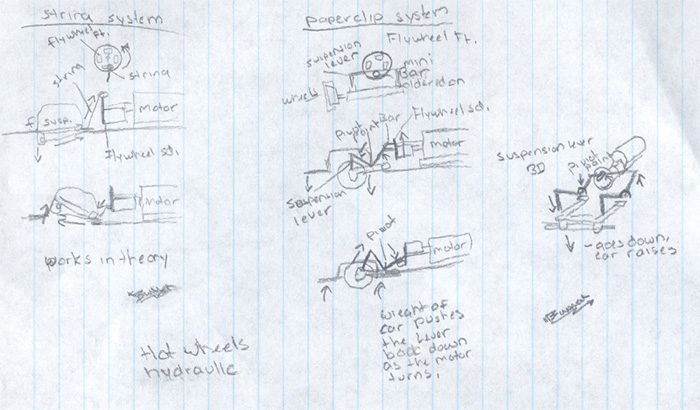 string system
flywheel ft.
string
string
motor
susp.
flywheel sd.
motor
works in theory
Hot wheels
hydraulic
paperclip system
suspension
lever
Flywheel Ft.
mini
Bar
solderd on
wheel
pivot
point
Bar
Flywheel sd.
motor
suspension
lever
pivot
motor
wieght of
car pushes
the lever
back down
as the motor
turns.
suspension lever
3D
pivot
point
-goes down,
car raises